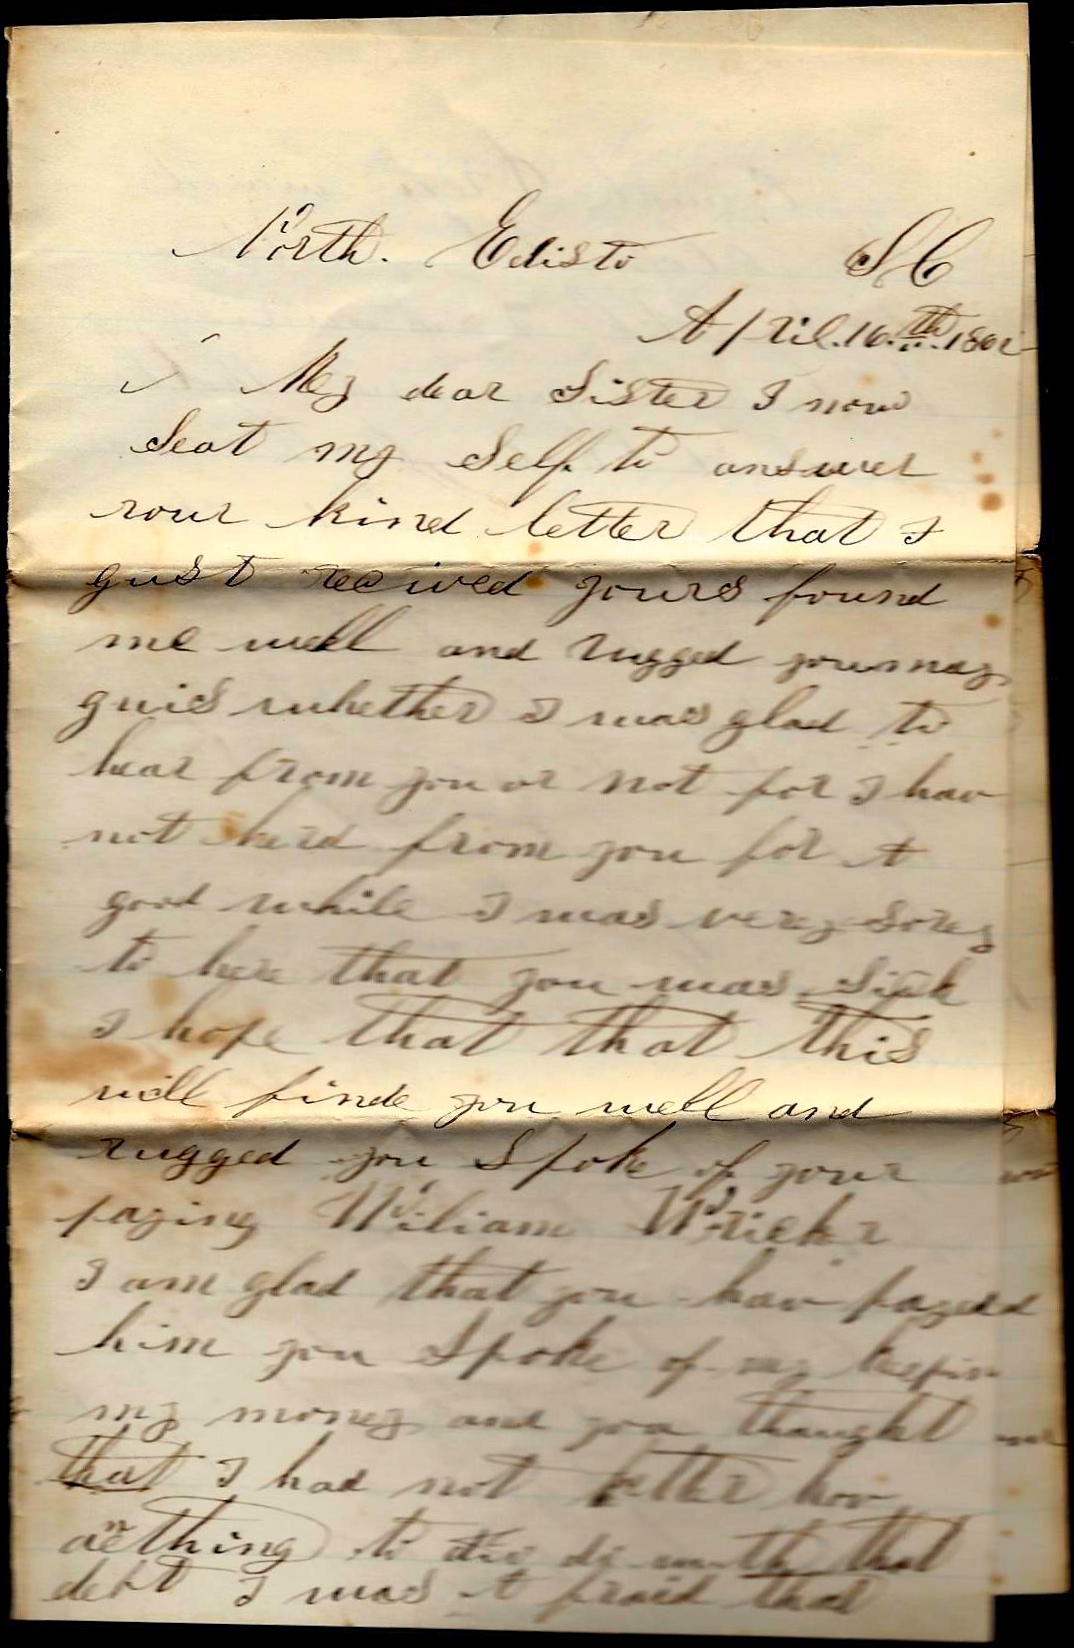 North. Edisto S C
April. 16.th. 1862
My dear Sister I now
Seat my Self. to answer
your kind letter that I
gust received yours found
me well and rugged you may
guis whether I was glad to
hear from you or not for I hav
not herd from you for A
good while I was very Sorey
to here that you was Sick
I hope that that this
will finde you well and
rugged you Spoke of your
paying William
I am glad that you hav payed
him you Spoke of my keepin
my money and you thaught
that I had not better hav
anething to do with that
debt I was A fraid that